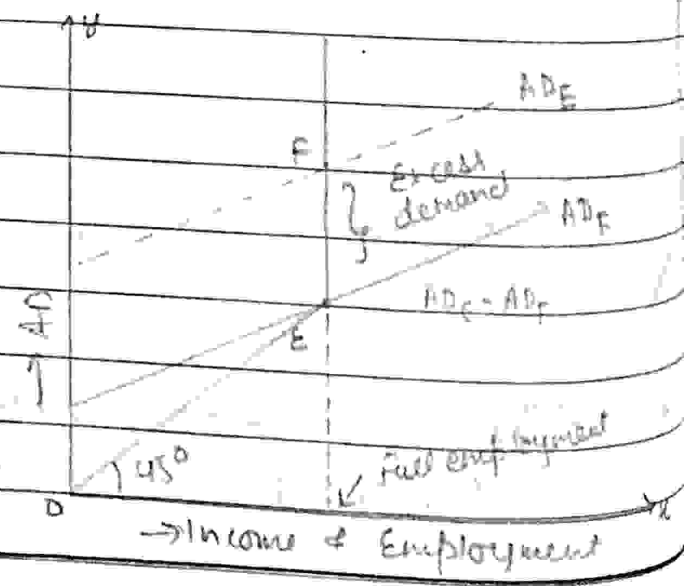 y
AD_E
F
Excess
demand
AD_F
AD_E - AD_F
AD
E
45°
Full employment
O
x
→ Income & Employment